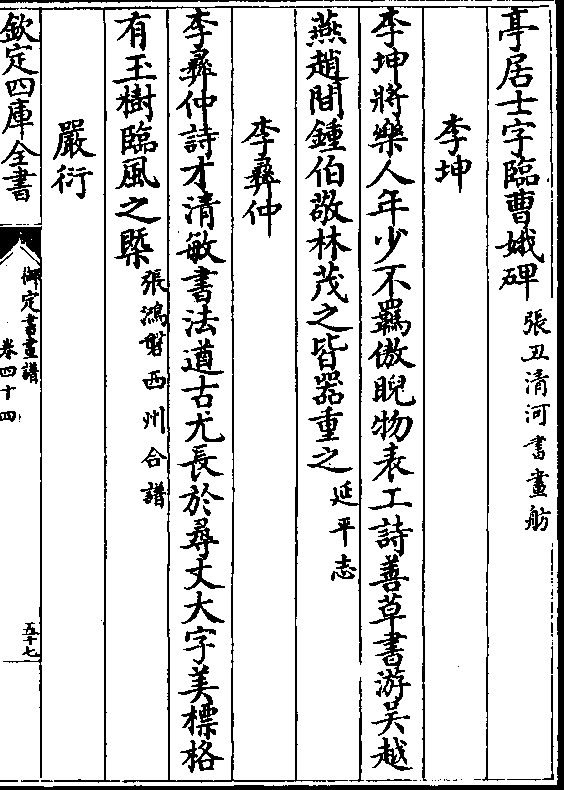 亭居士字臨曹娥碑張丑清河書畫舫
李坤
李坤將樂人年少不羈傲睨物表工詩善草書游吳越
燕趙間鍾伯敬林茂之皆器重之延平志
李彞仲
李彞仲詩才清敏書法遒古尤長於尋丈大字美標格
有玉樹臨風之槩張鴻磐西州合譜
嚴衍
欽定四庫全書
御定書畫譜
卷四十四
五十七